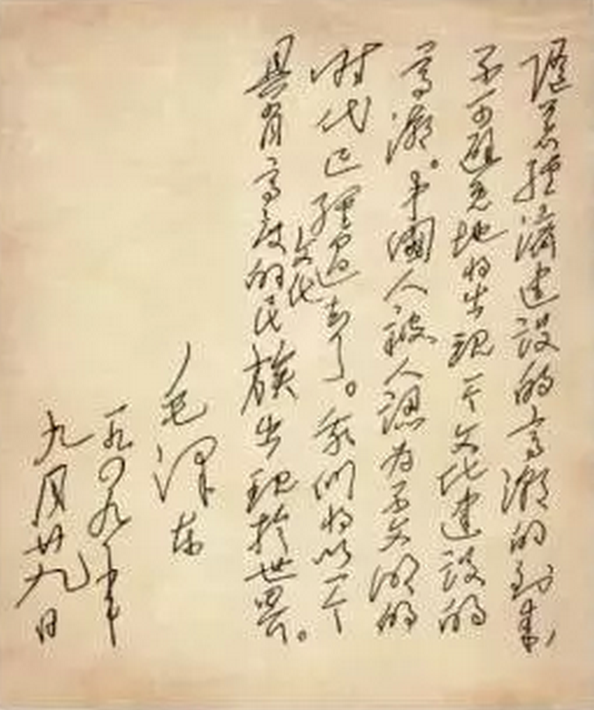 隨着經濟建設的高潮的到來,
不可避免地将出現一个文化建設的
高潮。中國人被人認为不文明的
时代已經過去了。我们将以一个
具有高度文化的民族出現於世界。
毛澤东
一九四九年
九月廿九日